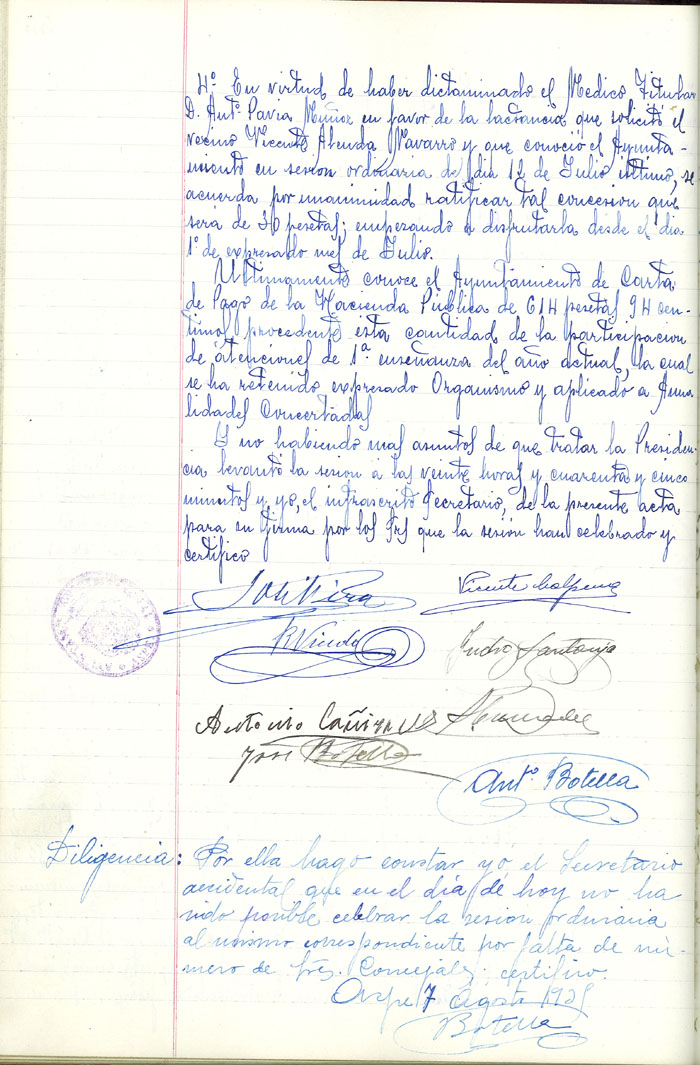 4º En virtud de haber dictaminado el Medico Titular
D. Antº Pavia Muñoz en favor de la lactancia que solicitó el
vecino Vicente Abenda Navarro y que conoció el Ayunta-
miento en sesion ordinaria del dia 12 de Julio ultimo, se
acuerda por unanimidad ratificar tal concesion que
sera de 30 pesetas; empezando a disfrutarla desde el dia
1º de expresado mes de Julio.
Ultimamente conoce el Ayuntamiento de Carta
de Pago de la Hacienda Publica de 614 pesetas 94 cen-
timos, procedente esta cantidad de la participacion
de atenciones de 1ª enseñanza del año actual, la cual
se ha retenido expresado Organismo y aplicado a Anua-
lidades Concertadas
Y no habiendo mas asuntos de que tratar la Presiden-
cia levantó la sesion a las veinte horas y cuarenta y cinco
minutos y yo, el infrascrito Secretario, de la presente acta
para su firma por los Srs que la sesión han celebrado y
certifico
Vicente Malpena
Pedro Santonja
Antonio Cañizares
José Botella
Antº Botella
Diligencia: Por ella hago constar yo el Secretario
accidental que en el día de hoy no ha
sido posible celebrar la sesion ordinaria
al mismo correspondiente por falta de nú-
mero de Sres. Concejales; certifico.
Aspe 7 Agosto
Botella